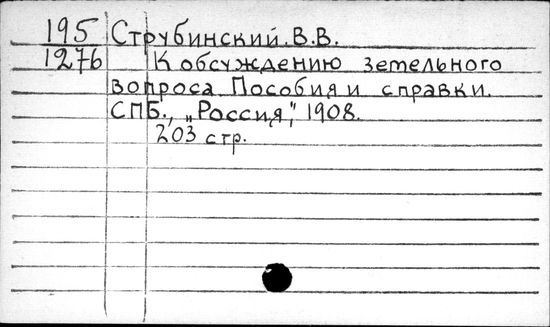 195 Струбинский.В.В.
1276 К обсуждению земельного
вопроса Пособия и справки.
СПБ., „Россия", 1908.
203 стр.